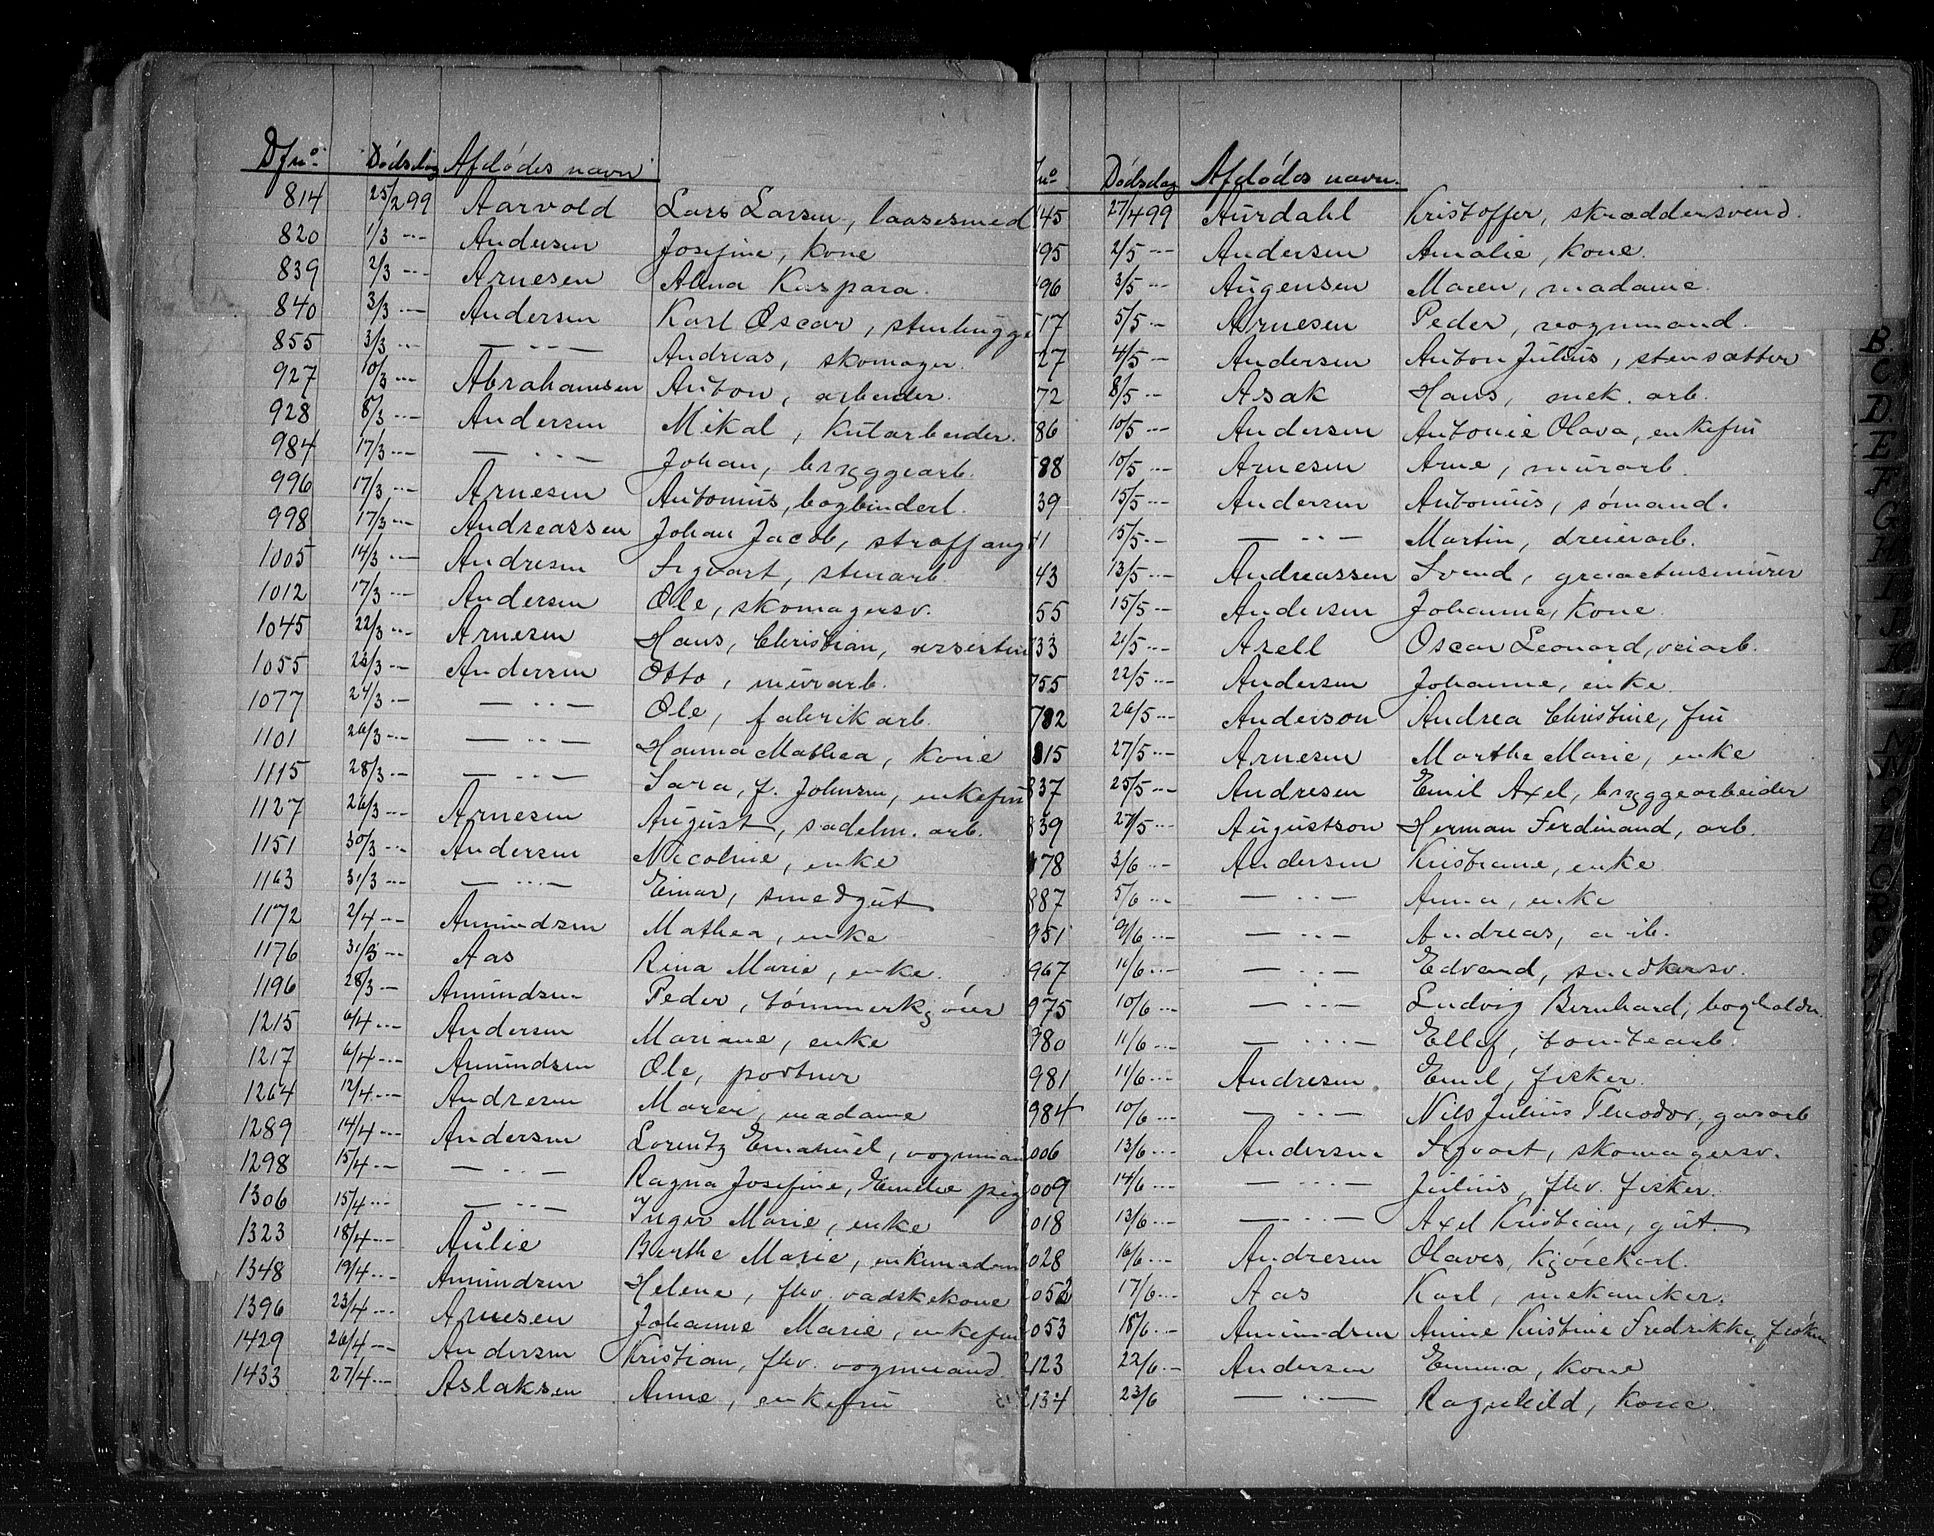 Dfno. Dödsdag Afdödes navn
814 25/2 99 Aarvold Lars Larsen, laasesmed
820 1/3 -..- Andersen Josefine, kone
839 2/3 -..- Arnesen Alma Kaspara.
840 3/3 -..- Andersen Karl Oscar, stenhugge
855 3/3 -..- — .. — Andreas, skomager.
927 10/3 -..- Abrahamsen Anton, arbeider.
928 8/3 -..- Andersen Mikal, hutarbeider.
984 17/3 -..- — .. — Johan, bryggearb.
996 17/3 -..- Arnesen Antonius, bogbinderl.
998 17/3 -..- Andreassen Johan Jacob, straffange
1005 14/3 -..- Andresen Sigvart, stenarb.
1012 17/3 -..- Andersen Ole, skomagersv.
1045 22/3 -..- Arnesen Hans, Christian, assisten
1055 23/3 -..- Andersen Otto, murarb.
1077 24/3 -..- — .. — Ole, fabrikarb.
1101 26/3 -..- — .. — Hanna Mathea, kone
1115 28/3 -..- — .. — Sara, f. Johnsen, enkefru
1127 26/3 -..- Arnesen August, sadelm. arb.
1151 30/3 -..- Andersen Nicoline, enke
1163 31/3 -..- — .. — Einar, smedgut
1172 2/4 -..- Amundsen Mathea, enke
1176 31/3 -..- Aas Rina Marie, enke.
1196 28/3 -..- Amundsen Peder, tømmerkjører
1215 6/4 -..- Andersen Mariane, enke
1217 6/4 -..- Amundsen Ole, portner
1264 12/4 -..- Andresen Maren, madame
1289 14/4 -..- Andersen Lorentz Emanuel, vognman
1298 15/4 -..- — .. — Ragna Josefine, Emelie pig
1306 15/4 -..- — .. — Inger Marie, enke
1323 18/4 -..- Aulie Berthe Marie, enkemadam
1348 19/4 -..- Amundsen Helene, fhv. vadskekone
1396 23/4 -..- Arnesen Johanne Marie, enkefru
1429 26/4 -..- Andersen Kristian, fhv. vognmand
1433 27/4 -..- Aslaksen Anne, enkefru
no. Dödsdag Afdödes navn.
45 27/4 99 Aurdahl Kristoffer, skræddersvend.
95 2/5 -..- Andersen Amalie, kone.
96 3/5 -..- Augensen Maren, madame
17 5/5 -..- Arnesen Peder, vognmand.
27 4/5 -..- Andersen Anton Julius, stensætter
72 8/5 -..- Asak Hans, mek. arb.
86 10/5 -..- Andersen Antonie Olava, enkefru
88 10/5 -..- Arnesen Arne, murarb.
39 15/5 -..- Andersen Antonius, sømand.
1 15/5 -..- — .. — Martin, dreierarb.
43 13/5 -..- Andreassen Svend,
55 15/5 -..- Andersen Johanne, kone.
33 21/5 -..- Axell Oscar Leonard, veiarb.
755 22/5 -..- Andersen Johanne, enke.
782 26/5 -..- Anderson Andrea Christine, fru
815 27/5 -..- Arnesen Marthe Marie, enke
837 25/5 -..- Andresen Emil Axel, bryggearbeider
839 27/5 -..- Augustson Herman Ferdinand, arb.
878 3/6 -..- Andersen Kristiane, enke
887 5/6 -..- — .. — Anna, enke
951 9/6 -..- — .. — Andreas, arb.
967 11/6 -..- — .. — Edvard, snedkersv.
975 10/6 -..- — .. — Ludvig Bernhard, bogholder.
980 11/6 -..- — .. — Ellef, tomtearb.
981 11/6 -..- Andresen Emil, fisker.
984 10/6 -..- — .. — Nils Julius Theodor, gasarb
006 13/6 -..- Andersen Sigvart, skomagersv.
009 14/6 -..- — .. — Julius, fhv. fisker.
018 13/6 -..- — .. — Axel Kristian, gut.
028 16/6 -..- Andresen Olaves, kjørekarl.
052 17/6 -..- Aas Karl, mekaniker.
053 18/6 -..- Amundsen Anine Kristine Fredrikke, frøken
123 22/6 -..- Andersen Emma, kone
134 23/6 — .. — Ragnhild, kone.
B.
C.
D.
E
F
G
H
I
J
K